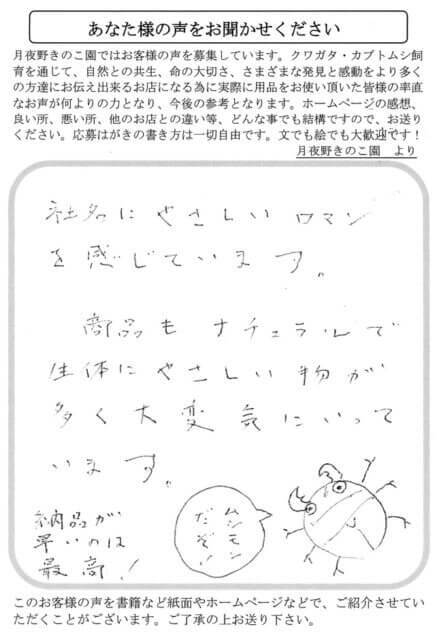 あなた様の声をお聞かせください
月夜野きのこ園ではお客様の声を募集しています。クワガタ・カブトムシ飼
育を通じて、自然との共生、命の大切さ、さまざまな発見と感動をより多く
の方達にお伝え出来るお店になる為に実際に用品をお使い頂いた皆様の率直
なお声が何よりの力となり、今後の参考となります。ホームページの感想、
良い所、悪い所、他のお店との違い等、どんな事でも結構ですので、お送り
ください。応募はがきの書き方は一切自由です。文でも絵でも大歓迎です!
月夜野きのこ園 より
社名にやさしいロマン
を感じています。
商品もナチュラルで
生体にやさしい物が
多く大変気にいって
います。
納品が
早いのは
最高!
ムシモン
だぞい
このお客様の声を書籍など紙面やホームページなどで、ご紹介させてい
ただくことがございます。ご了承の上お送り下さい。